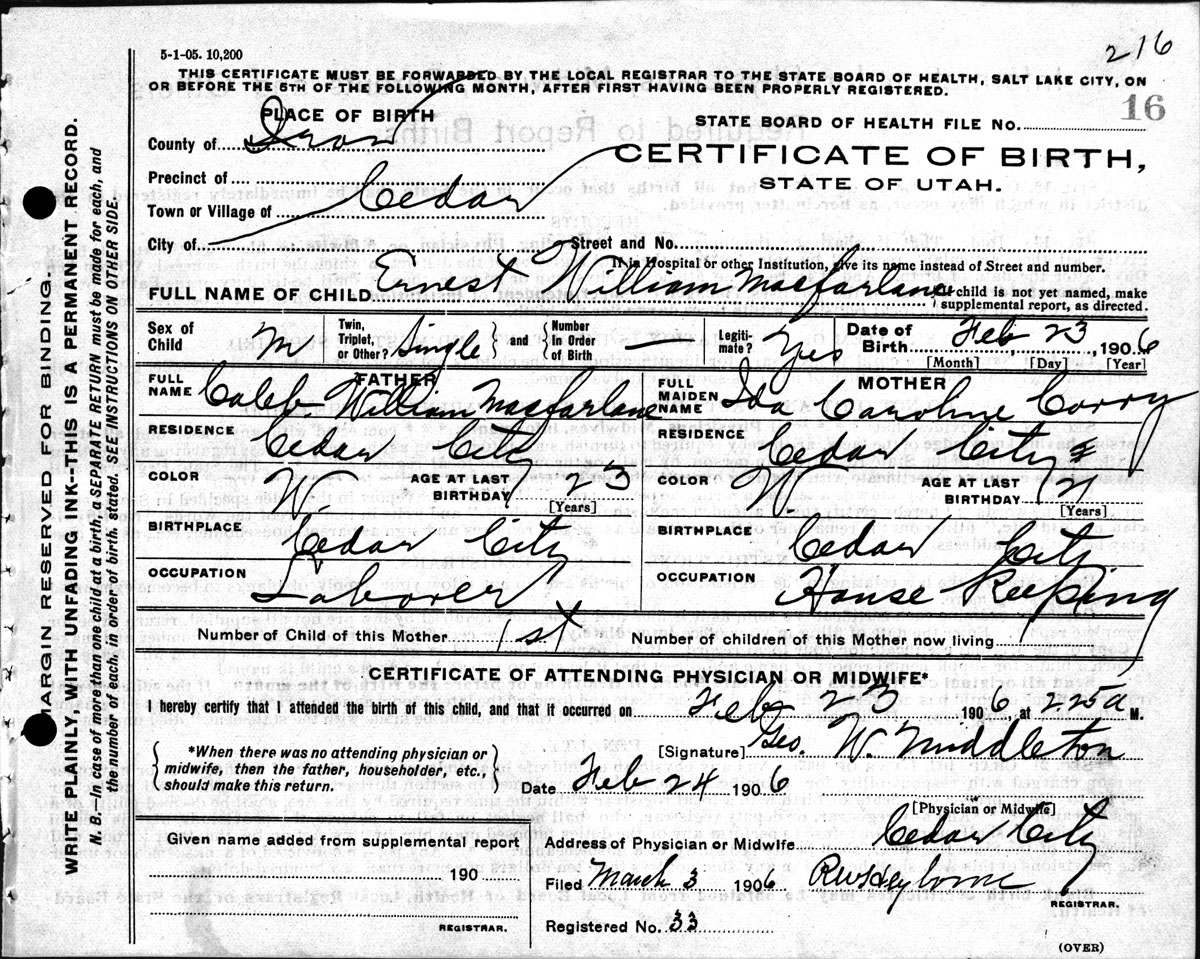 216
5-1-05. 10,200
THIS CERTIFICATE MUST BE FORWARDED BY THE LOCAL REGISTRAR TO THE STATE BOARD OF HEALTH, SALT LAKE CITY, ON
OR BEFORE THE 5TH OF THE FOLLOWING MONTH, AFTER FIRST HAVING BEEN PROPERLY REGISTERED.
PLACE OF BIRTH
STATE BOARD OF HEALTH FILE No. 16
County of Iron
CERTIFICATE OF BIRTH,
STATE OF UTAH.
Precinct of Cedar
Town or Village of
City of Street and No.
If in Hospital or other Institution, give its name instead of Street and number.
FULL NAME OF CHILD Ernest William Macfarlane
If child is not yet named, make
supplemental report, as directed.
Sex of Child M Twin, Triplet, or Other? Single and Number In Order of Birth — Legiti-mate? Yes Date of Birth Feb, 23, 1906
[Month] [Day] [Year]
FATHER
FULL NAME Caleb William Macfarlane
RESIDENCE Cedar City
COLOR W. AGE AT LAST BIRTHDAY 23
[Years]
BIRTHPLACE Cedar City
OCCUPATION Laborer
MOTHER
FULL MAIDEN NAME Ida Caroline Corry
RESIDENCE Cedar City
COLOR W. AGE AT LAST BIRTHDAY
[Years]
BIRTHPLACE Cedar City
OCCUPATION House Keeping
Number of Child of this Mother 1st Number of children of this Mother now living 1
CERTIFICATE OF ATTENDING PHYSICIAN OR MIDWIFE*
I hereby certify that I attended the birth of this child, and that it occurred on Feb 23 1906, at 225 a M.
*When there was no attending physician or
midwife, then the father, householder, etc.,
should make this return.
[Signature] Geo. W. Middleton
Date Feb 24 1906
[Physician or Midwife]
Given name added from supplemental report
190
REGISTRAR.
Address of Physician or Midwife Cedar City
Filed March 3 1906
REGISTRAR.
Registered No. 33
(OVER)
MARGIN RESERVED FOR BINDING.
WRITE PLAINLY, WITH UNFADING INK--THIS IS A PERMANENT RECORD.
N. B.—In case of more than one child at a birth, a SEPARATE RETURN must be made for each, and
the number of each, in order of birth, stated. SEE INSTRUCTIONS ON OTHER SIDE.